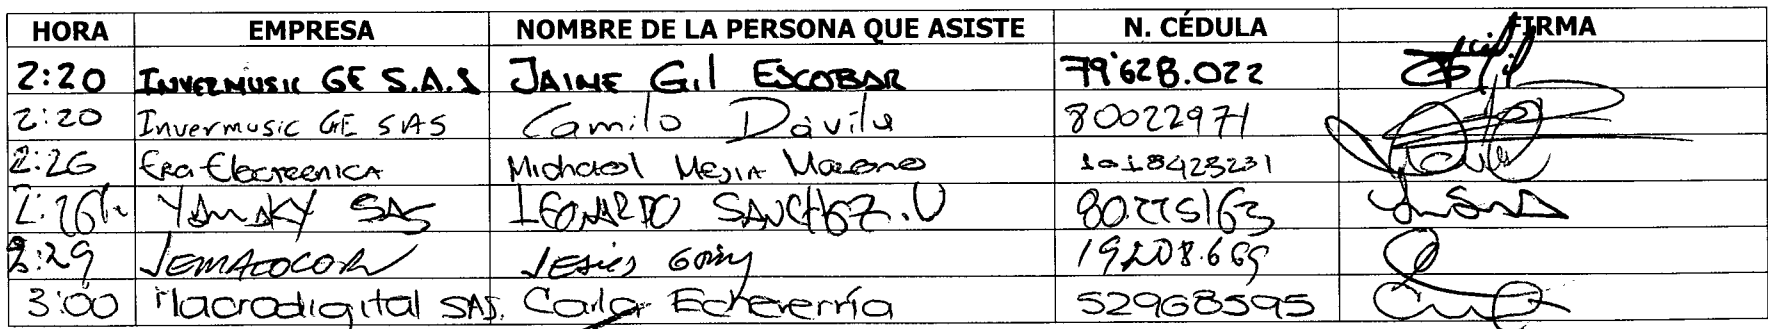 HORA EMPRESA NOMBRE DE LA PERSONA QUE ASISTE N. CÉDULA FIRMA
2:20 INVERMUSIC GE S.A.S JAIME Gil ESCOBAR 79'628.022
2:20 Invermusic GE SAS Camilo Dávila 80022971
2:26 Era Electronica Michael Mejia 1018423231
2:26 YAMAKY SAS LEONARDO SANCHEZ.V 80.775163
2:29 JESÚS 19208.669
3:00 Macrodigital SAS. Carlos Echeverría 52968595